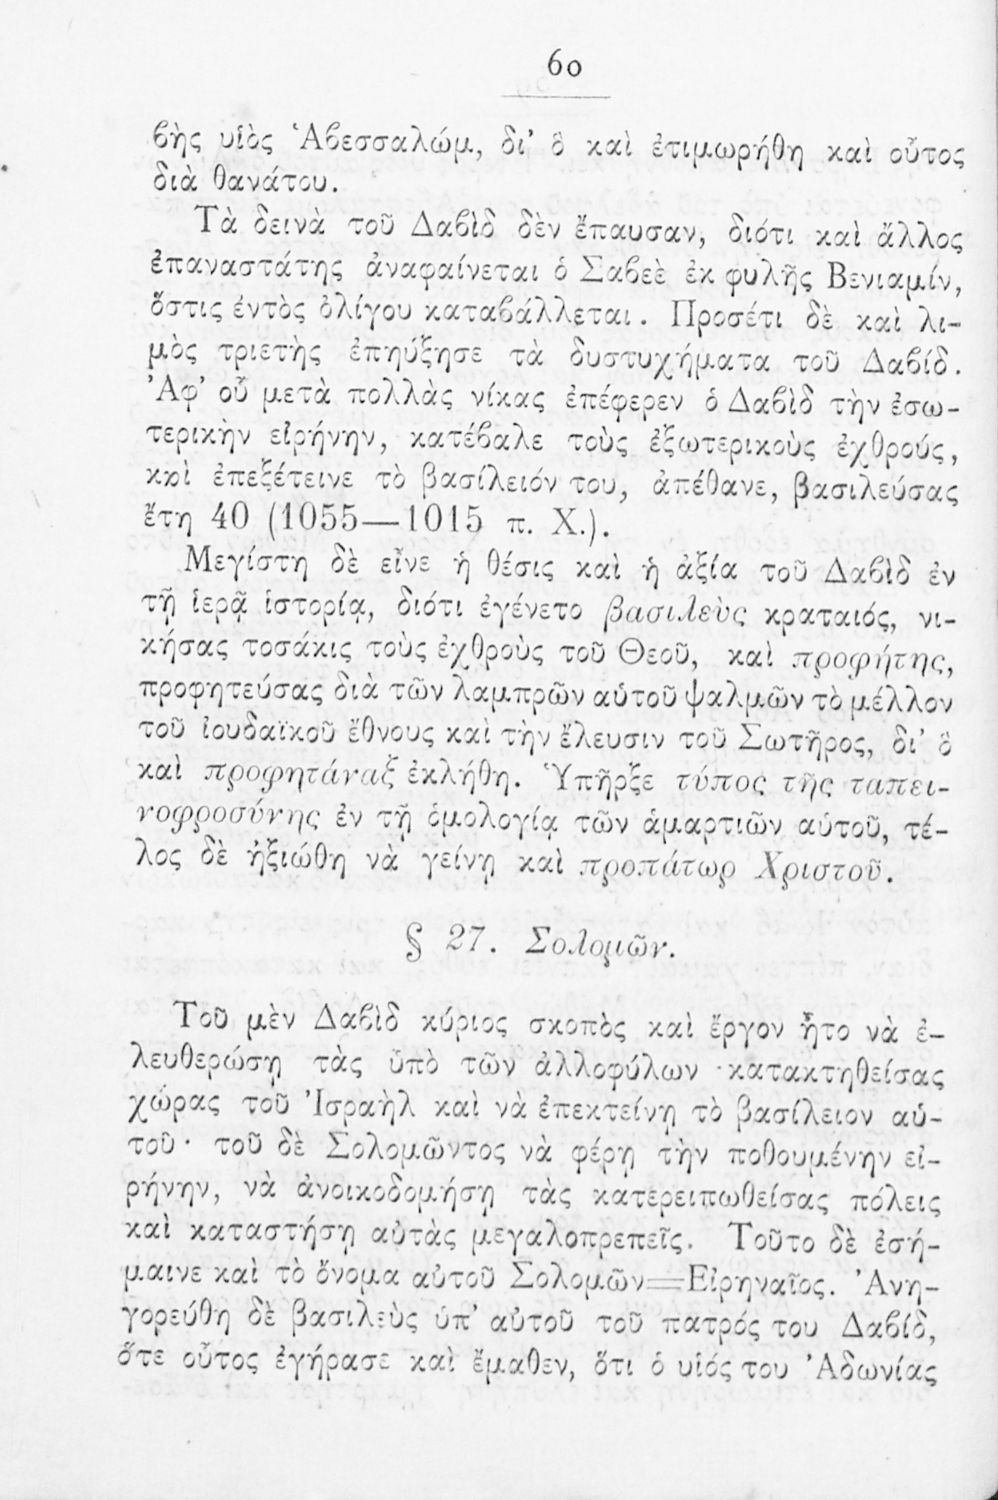 60
βὴς υἱὸς Ἀβεσσαλώμ, δι’ ὃ καὶ ἐτιμωρήθη καὶ οὗτος
διὰ θανάτου.
Τὰ δεινὰ τοῦ Δαβὶδ δὲν ἔπαυσαν, διότι καὶ ἄλλος
ἐπαναστάτης ἀναφαίνεται ὁ Σαβεὲ ἐκ φυλῆς Βενιαμίν,
ὅστις ἐντὸς ὀλίγου καταβάλλεται. Προσέτι δὲ καὶ λι-
μὸς τριετὴς ἐπηύξησε τὰ δυστυχήματα τοῦ Δαβίδ.
Ἀφ’ οὗ μετὰ πολλὰς νίκας ἐπέφερεν ὁ Δαβὶδ τὴν ἐσω-
τερικὴν εἰρήνην, κατέβαλε τοὺς ἐξωτερικοὺς ἐχθρούς,
καὶ ἐπεξέτεινε τὸ βασίλειόν του, ἀπέθανε, βασιλεύσας
ἔτη 40 (1055—1015 π. Χ.).
Μεγίστη δὲ εἶνε ἡ θέσις καὶ ἡ ἀξία τοῦ Δαβὶδ ἐν
τῇ ἱερᾷ ἱστορίᾳ, διότι ἐγένετο βασιλεὺς κραταιός, νι-
κήσας τοσάκις τοὺς ἐχθροὺς τοῦ Θεοῦ, καὶ προφήτης,
προφητεύσας διὰ τῶν λαμπρῶν αὑτοῦ ψαλμῶν τὸ μέλλον
τοῦ ἰουδαϊκοῦ ἔθνους καὶ τὴν ἔλευσιν τοῦ Σωτῆρος, δι’ ὃ
καὶ προφητάναξ ἐκλήθη. Ὑπῆρξε τύπος τῆς ταπει-
νοφροσύνης ἐν τῇ ὁμολογίᾳ τῶν ἁμαρτιῶν αὑτοῦ, τέ-
λος δὲ ἠξιώθη νὰ γείνῃ καὶ προπάτωρ Χριστοῦ.
§ 27. Σολομῶν.
Τοῦ μὲν Δαβὶδ κύριος σκοπὸς καὶ ἔργον ἦτο νὰ ἐ-
λευθερώσῃ τὰς ὑπὸ τῶν ἀλλοφύλων κατακτηθείσας
χώρας τοῦ Ἰσραὴλ καὶ νὰ ἐπεκτείνῃ τὸ βασίλειον αὑ-
τοῦ· τοῦ δὲ Σολομῶντος νὰ φέρῃ τὴν ποθουμένην εἰ-
ρήνην, νὰ ἀνοικοδομήσῃ τὰς κατερειπωθείσας πόλεις
καὶ καταστήσῃ αὐτὰς μεγαλοπρεπεῖς. Τοῦτο δὲ ἐσή-
μαινε καὶ τὸ ὄνομα αὐτοῦ Σολομῶν=Εἰρηναῖος. Ἀνη-
γορεύθη δὲ βασιλεὺς ὑπ’ αὐτοῦ τοῦ πατρός του Δαβίδ,
ὅτε οὗτος ἐγήρασε καὶ ἔμαθεν, ὅτι ὁ υἱός του Ἀδωνίας